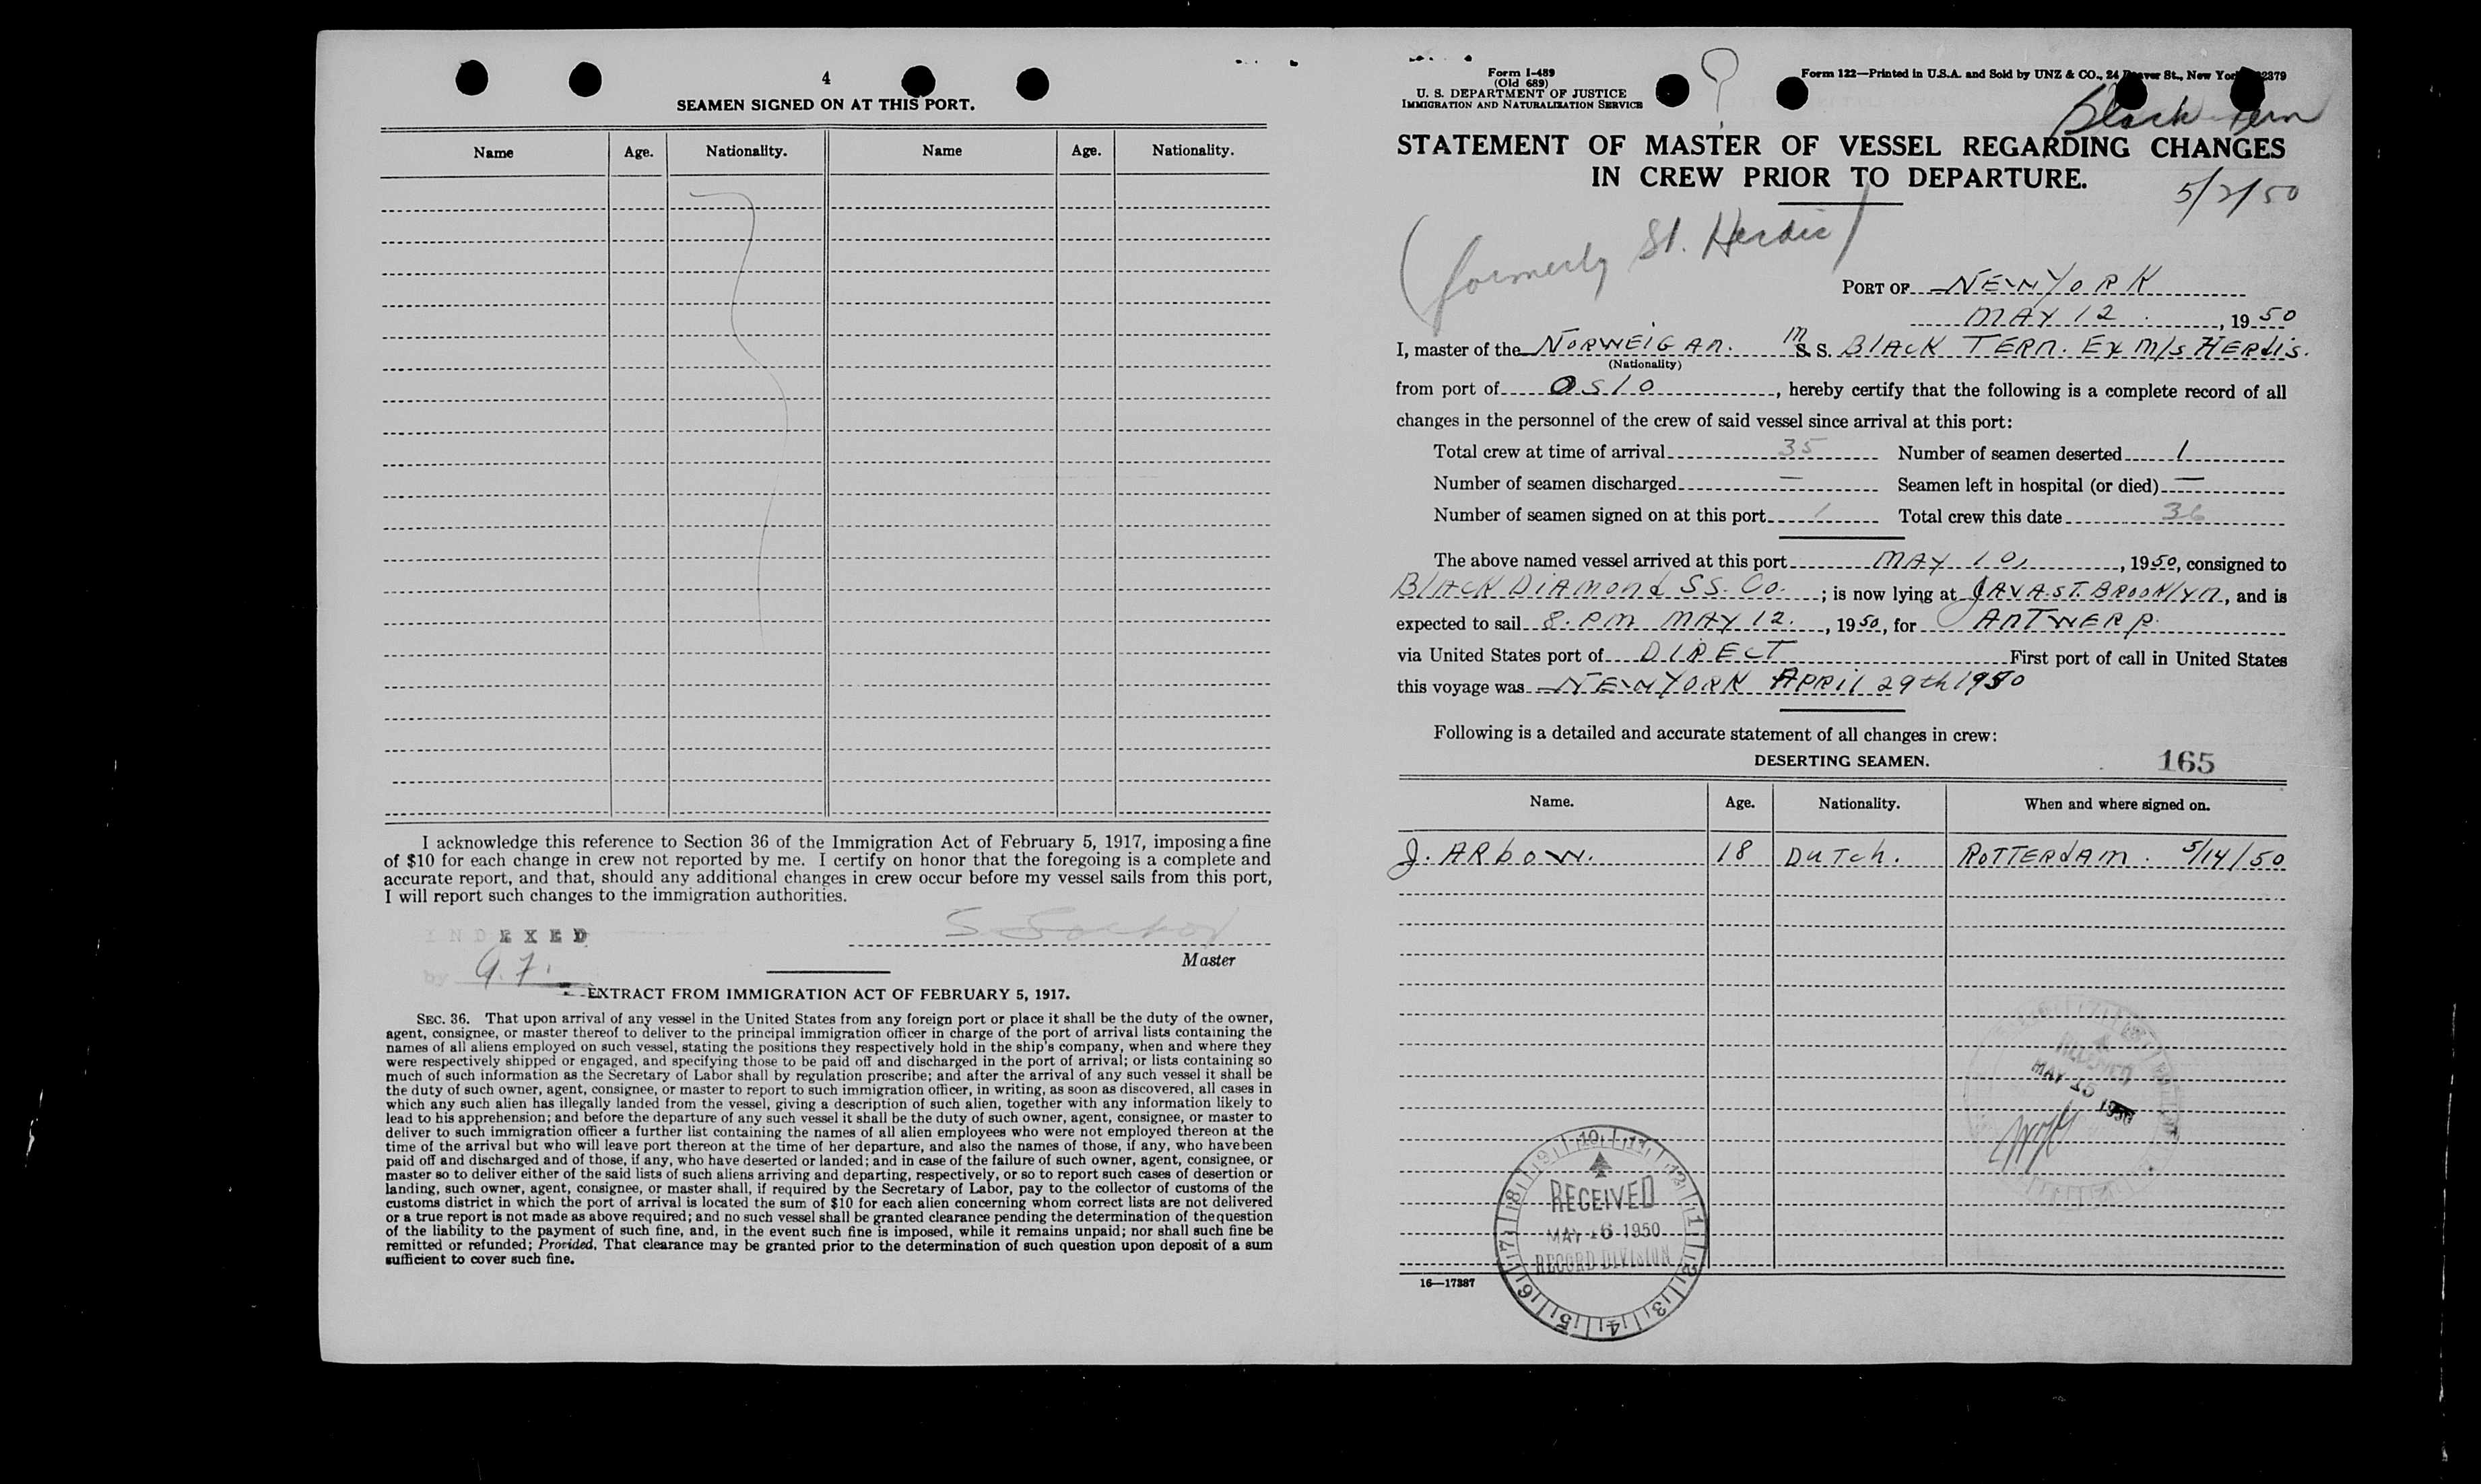 4
SEAMEN SIGNED ON AT THIS PORT.
Name Age. Nationality. Name Age. Nationality.
I acknowledge this reference to Section 36 of the Immigration Act of February 5, 1917, imposing a fine
of $10 for each change in crew not reported by me. I certify on honor that the foregoing is a complete and
accurate report, and that, should any additional changes in crew occur before my vessel sails from this port,
I will report such changes to the immigration authorities.
INDEXED
Master
by
EXTRACT FROM IMMIGRATION ACT OF FEBRUARY 5, 1917.
SEC. 36. That upon arrival of any vessel in the United States from any foreign port or place it shall be the duty of the owner,
agent, consignee, or master thereof to deliver to the principal immigration officer in charge of the port of arrival lists containing the
names of all aliens employed on such vessel, stating the positions they respectively hold in the ship's company, when and where they
were respectively shipped or engaged, and specifying those to be paid off and discharged in the port of arrival; or lists containing so
much of such information as the Secretary of Labor shall by regulation prescribe; and after the arrival of any such vessel it shall be
the duty of such owner, agent, consignee, or master to report to such immigration officer, in writing, as soon as discovered, all cases in
which any such alien has illegally landed from the vessel, giving a description of such alien, together with any information likely to
lead to his apprehension; and before the departure of any such vessel it shall be the duty of such owner, agent, consignee, or master to
deliver to such immigration officer a further list containing the names of all alien employees who were not employed thereon at the
time of the arrival but who will leave port thereon at the time of her departure, and also the names of those, if any, who have been
paid off and discharged and of those, if any, who have deserted or landed; and in case of the failure of such owner, agent, consignee, or
master so to deliver either of the said lists of such aliens arriving and departing, respectively, or so to report such cases of desertion or
landing, such owner, agent, consignee, or master shall, if required by the Secretary of Labor, pay to the collector of customs of the
customs district in which the port of arrival is located the sum of $10 for each alien concerning whom correct lists are not delivered
or a true report is not made as above required; and no such vessel shall be granted clearance pending the determination of the question
of the liability to the payment of such fine, and, in the event such fine is imposed, while it remains unpaid; nor shall such fine be
remitted or refunded; Provided, That clearance may be granted prior to the determination of such question upon deposit of a sum
sufficient to cover such fine.
Form I-489
(Old 689)
U. S. DEPARTMENT OF JUSTICE
IMMIGRATION AND NATURALIZATION SERVICE
Form 122—Printed in U.S.A. and Sold by UNZ & CO., 24 St., New York 2379
Black Tern
STATEMENT OF MASTER OF VESSEL REGARDING CHANGES
IN CREW PRIOR TO DEPARTURE.
5/2/50
(formerly St. Herdis)
PORT OF NEW YORK
MAY 12, 1950
I, master of the NORWEIGAN. M S. S. BLACK TERN. EX M/S HERDIS.
(Nationality)
from port of OSLO, hereby certify that the following is a complete record of all
changes in the personnel of the crew of said vessel since arrival at this port:
Total crew at time of arrival 35 Number of seamen deserted 1
Number of seamen discharged — Seamen left in hospital (or died) —
Number of seamen signed on at this port 1 Total crew this date 36
The above named vessel arrived at this port MAY 10, 1950, consigned to
BLACK DIAMOND SS. CO. ; is now lying at JAVA ST. BROOKLYN, and is
expected to sail 8. PM MAY 12. , 1950, for ANTWERP.
via United States port of DIRECT First port of call in United States
this voyage was NEW YORK APRIL 29th 1950
Following is a detailed and accurate statement of all changes in crew:
DESERTING SEAMEN. 165
Name. Age. Nationality. When and where signed on.
J. ARBOW. 18 DUTCH. ROTTERDAM. 5/14/50
RECEIVED
MAY 1950
10 11 12 1 2 3 4 5 6 7 8 9
RECEIVED
MAY 16 1950
RECORD DIVISION
16—17387